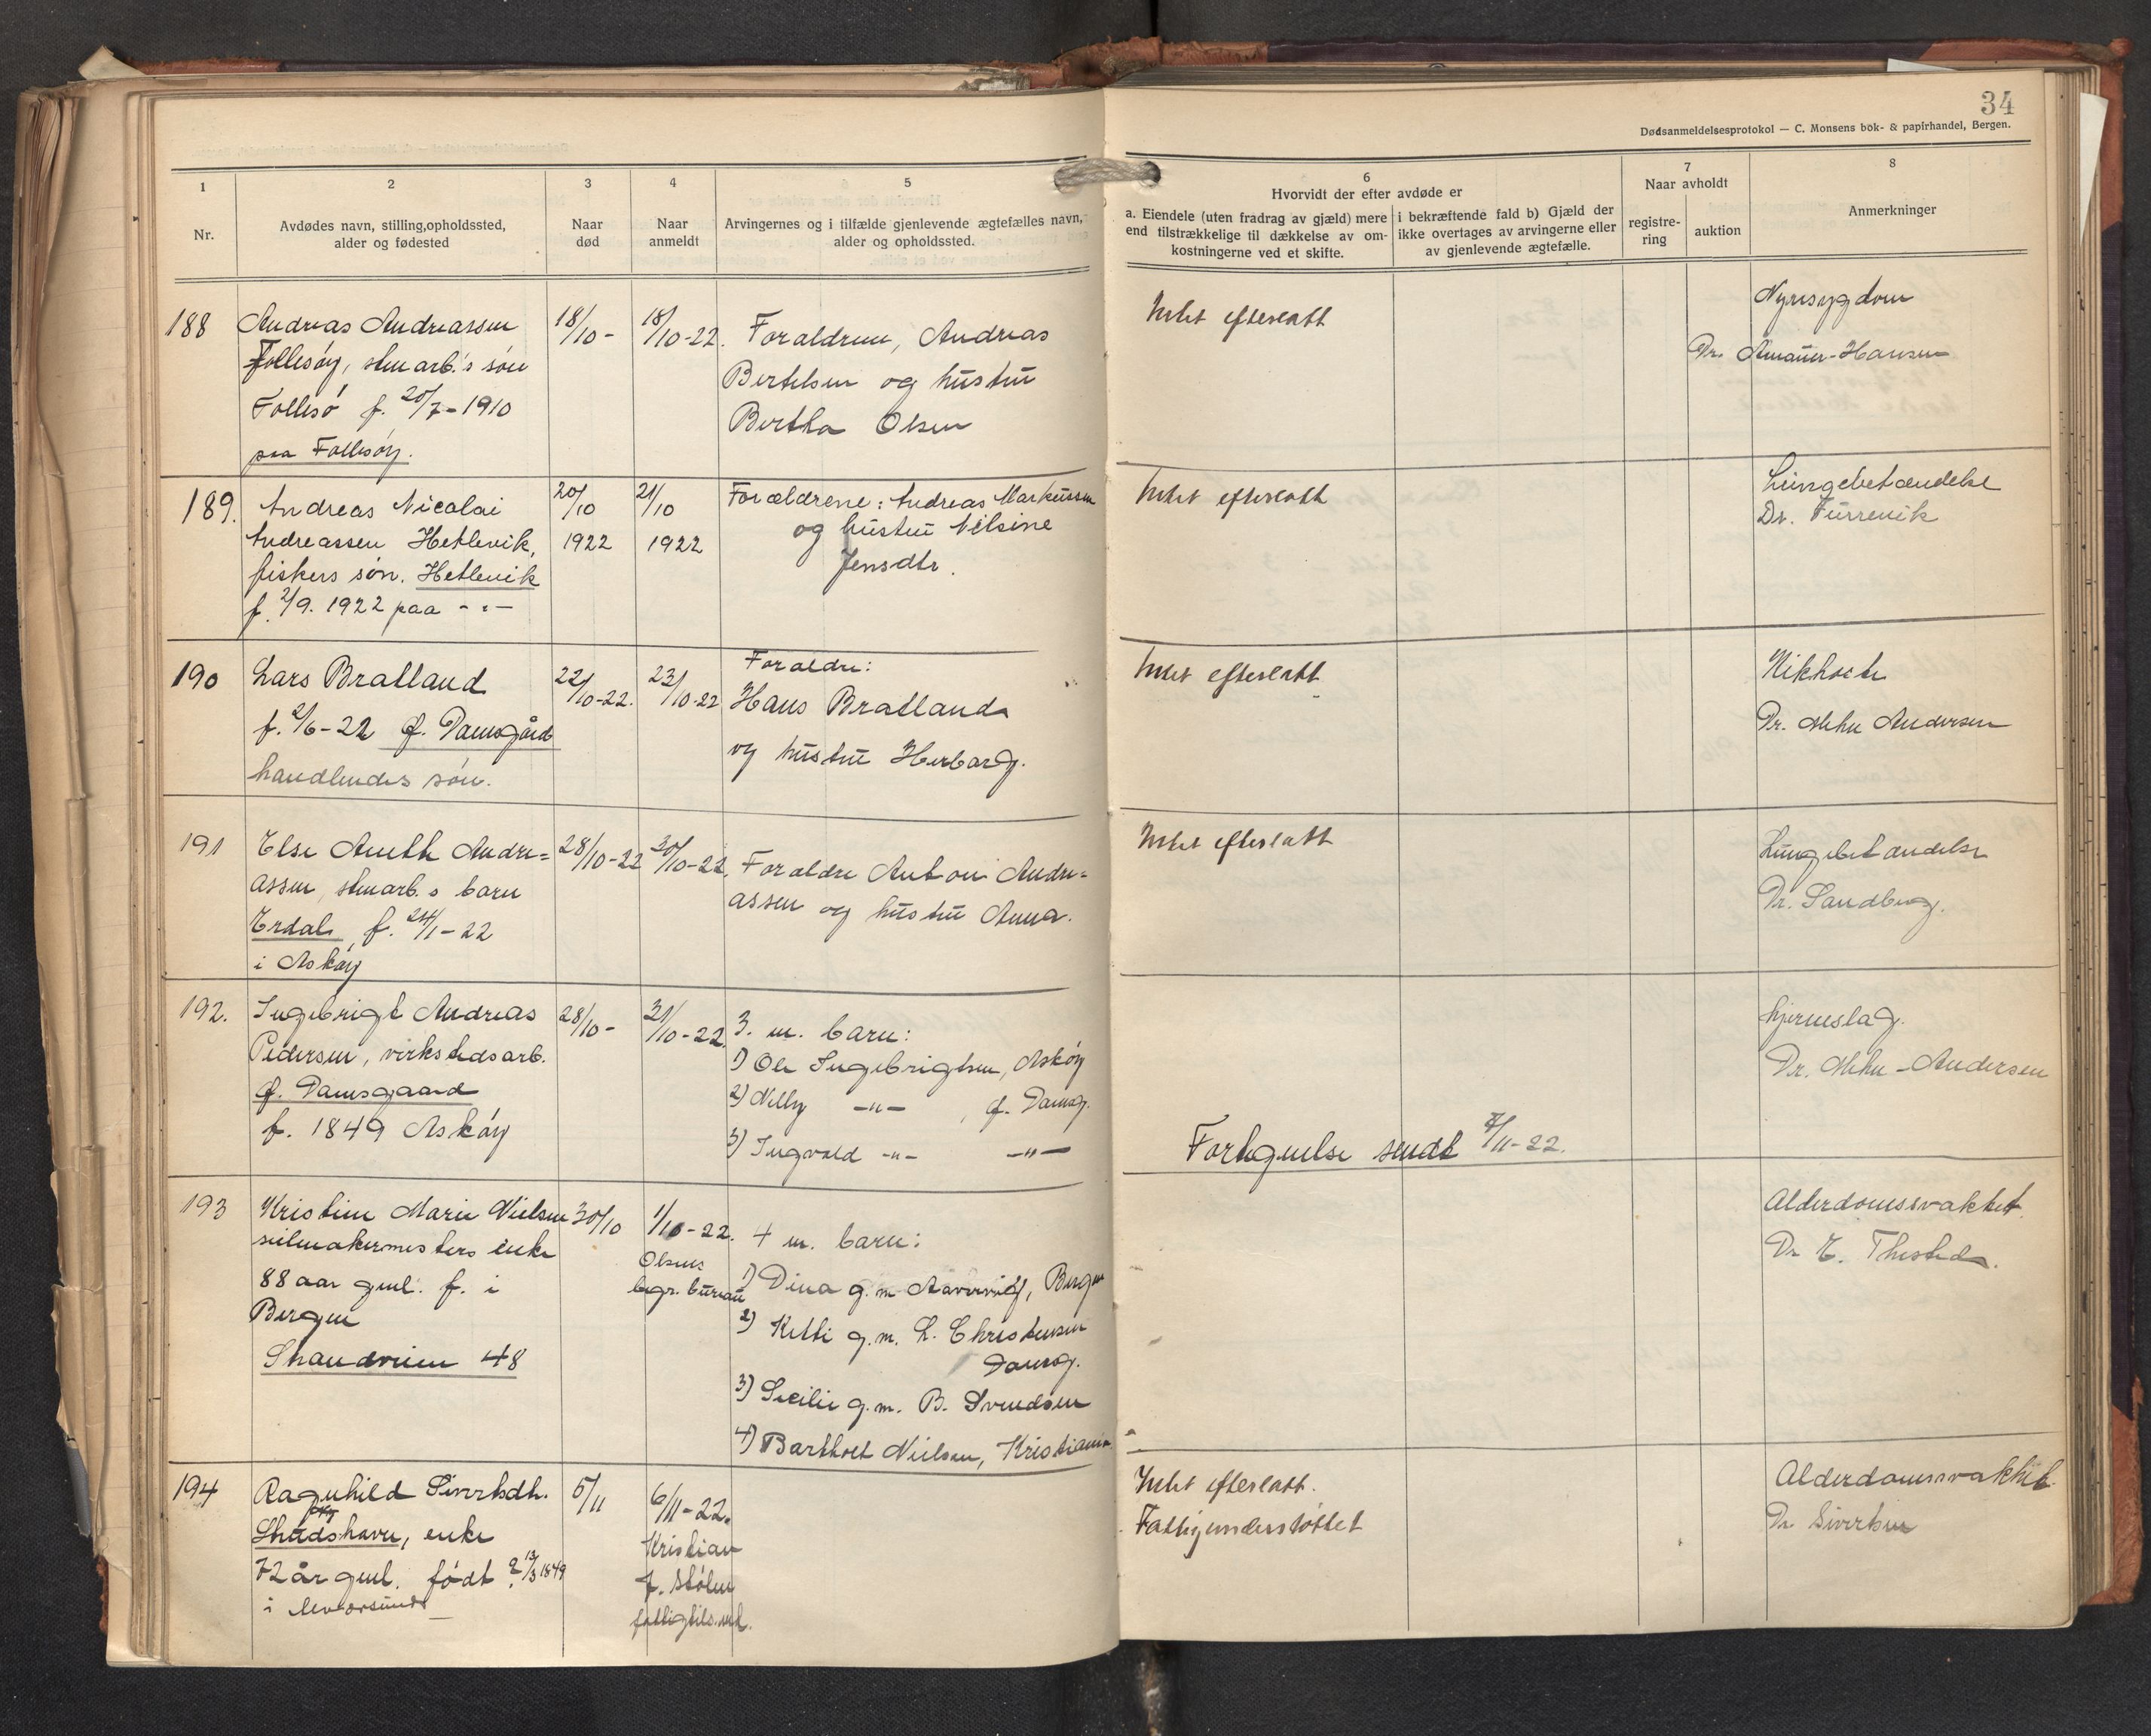 34
Dødsanmeldelsesprotokol — C. Monsens bok- & papirhandel, Bergen.
1
Nr.
2
Avdødes navn, stilling, opholdssted,
alder og fødested
3
Naar
død
4
Naar
anmeldt
5
Arvingernes og i tilfælde gjenlevende ægtefælles navn,
alder og opholdssted.
6
Hvorvidt der efter avdøde er
a. Eiendele (uten fradrag av gjæld) mere
end tilstrækkelige til dækkelse av om-
kostningerne ved et skifte.
i bekræftende fald b) Gjæld der
ikke overtages av arvingerne eller
av gjenlevende ægtefælle.
7
Naar avholdt
registre-
ring
auktion
8
Anmerkninger
188
Andreas Andreassen
Follesøy, stenarb.'s søn
Follesø f. 20/7-1910
paa Follesøy.
18/10 -
18/10-22.
Forældrene, Andreas
Bertelsen og hustru
Bertha Olsen
Intet efterlatt
Nyresygdom
Dr. Amauer-Hansen
189.
Andreas Nicolai
Andreassen Hetlevik,
fiskers søn. Hetlevik
f. 2/9. 1922 paa - " -
20/10
1922
21/10
1922
Forældrene: Andreas Markussen
og hustru Nilsine
Jensdtr.
Intet efterlatt
Lungebetændelse
Dr. Furrevik
190
Lars Bratland
f. 2/6-22 Ø. Damsgård
handlendes søn.
22/10-22.
23/10-22
Forældre:
Hans Bratland
og hustru Herborg.
Intet efterlatt
Kikhoste
Dr. Mehn Andersen
191
Else Aneth Andre=
assen, stenarb.s barn
Erdal, f. 24/1-22
i Askøy
28/10-22
30/10-22.
Forældre Anton Andre=
assen og hustru Anna.
Intet efterlatt
Lungebetændelse
Dr. Sandberg.
192.
Ingebrigt Andreas
Pedersen, verkstedsarb.
Ø. Damsgaard
f. 1849 Askøy
28/10 -
31/10-22.
3. m. barn:
1) Ole Ingebrigtsen, Askøy
2) Nelly -"- , Ø. Damsg.
3) Ingvald -"- -"-
Fortegnelse sendt 7/11-22.
Hjerneslag.
Dr. Mehn-Andersen
193
Kristine Marie Nielsen
seilmakermesters enke
88 aar gml. f. i
Bergen
Strandveien 48
30/10
1/10-22.
Olsens
begr. bureau
4 m. barn:
1) Dina g. m. , Bergen
2) Ketti g.m. L. Christensen
Damsg.
3) Secilie g.m. B. Svendsen
4) Bartholt Nielsen, Kristiania
Alderdomssvakhet.
Dr E. Thested.
194
Ragnhild Sivertsdtr.
Skudshavn, enke
72 år gml. født ? 13/3 1849
i Alversund
5/11
6/11-22.
Kristian
J. Stølen
fattigtils.md.
Intet efterlatt.
Fattigunderstøttet
Alderdomssvakhet.
Dr Sivertsen